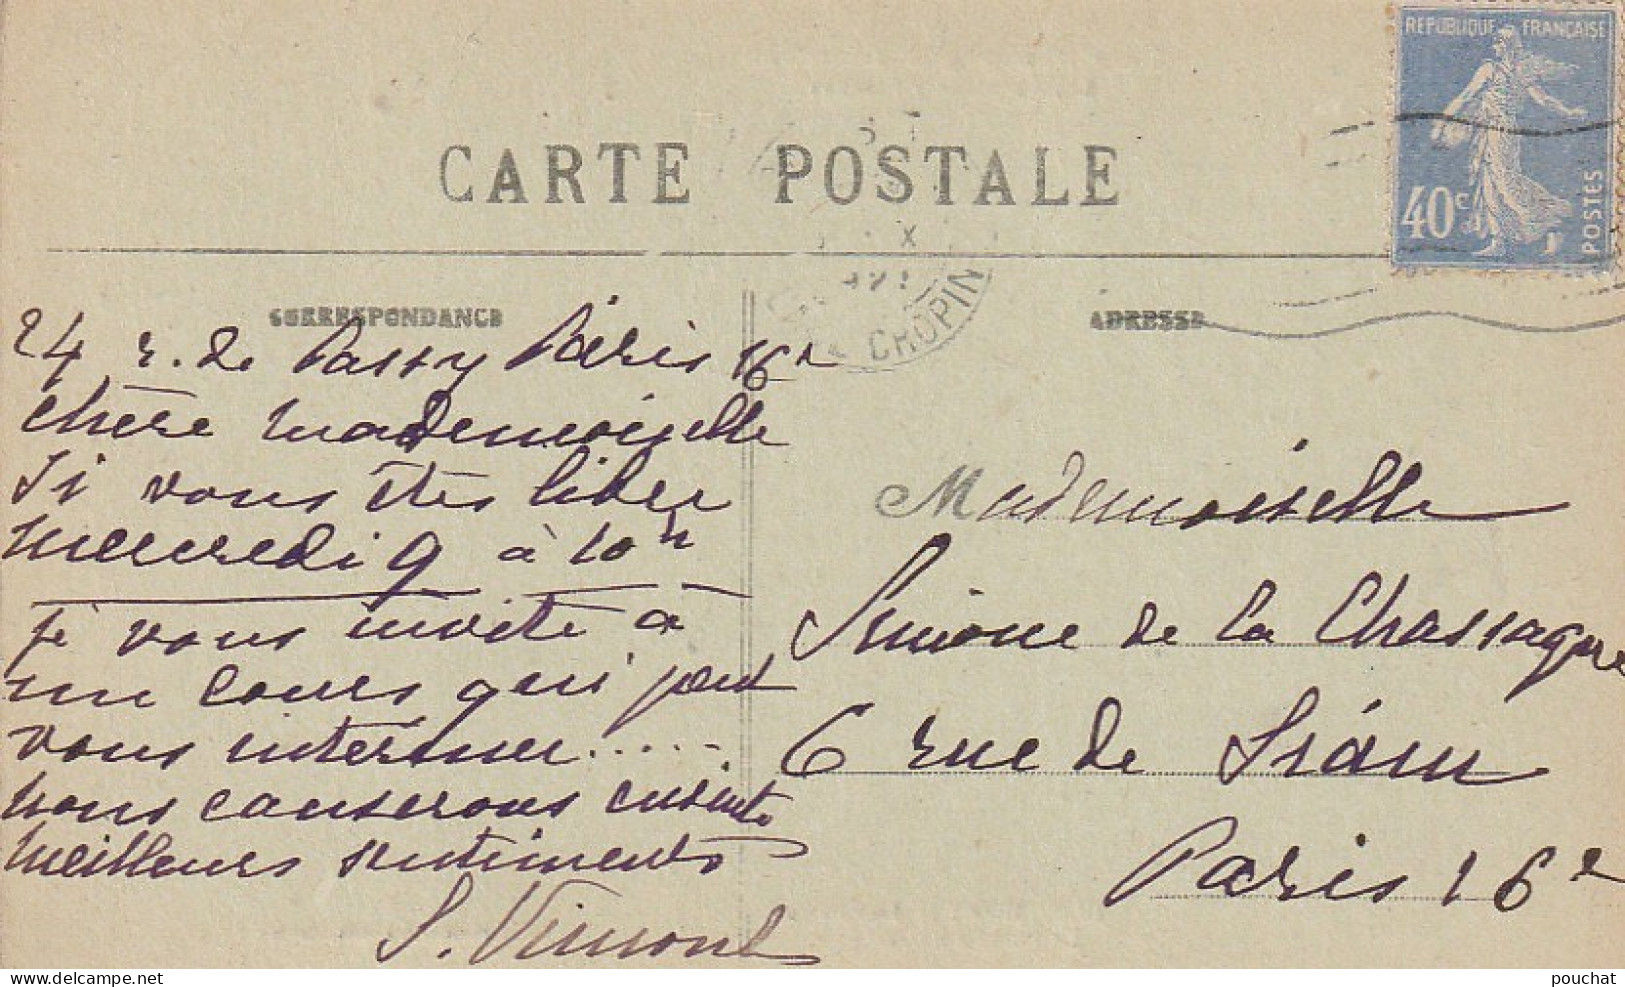 REPUBLIQUE FRANÇAISE
40c
POSTES
CARTE POSTALE
X
CHOPIN
CORRESPONDANCE
24 r. de Passy Paris 16e
Chère Mademoiselle
Si vous êtes libre
mercredi 9 à 10h
je vous invite à
un cours qui peut
vous intéresser.....
nous causerons ensuite
meilleurs sentiments
S. Vimont
ADRESSE
Mademoiselle
Simone de la Chassagne
6 rue de Siam
Paris 16e
pouchat